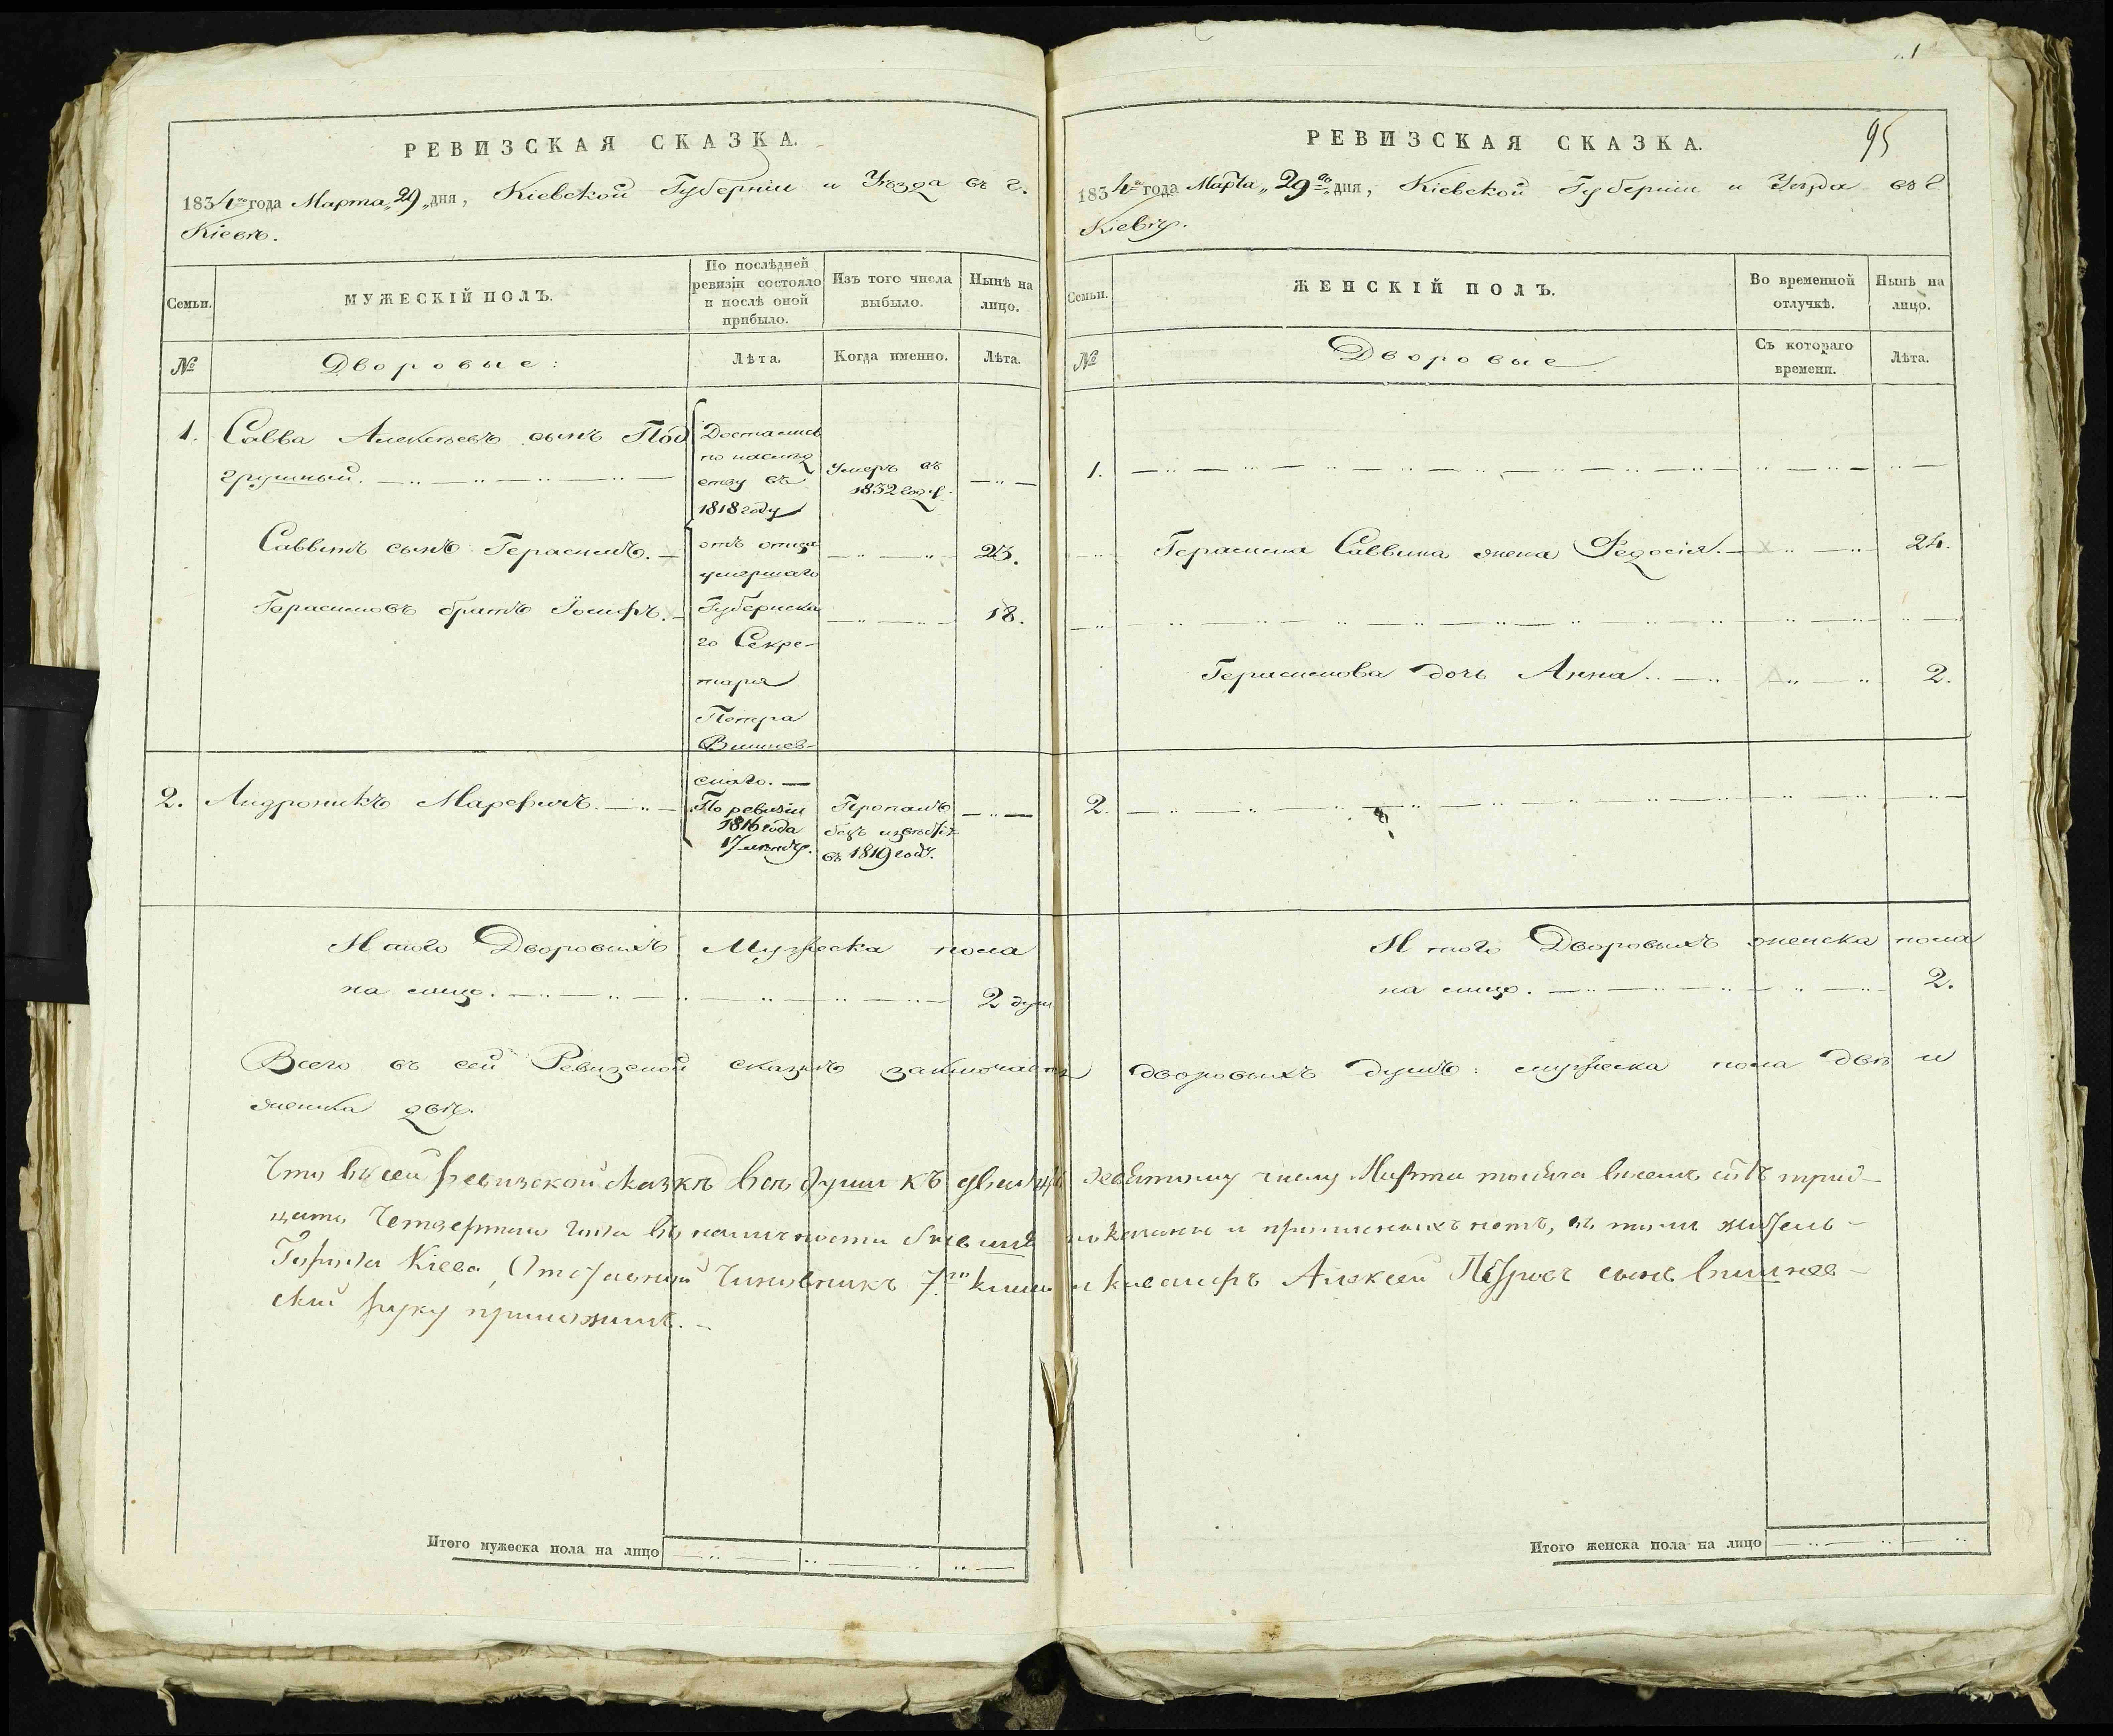 РЕВИЗСКАЯ СКАЗКА.
1834го года Марта „29„ дня, Кіевской Губерніи и Уѣзда въ г.
Кіевѣ.
Семьи.
МУЖЕСКІЙ ПОЛЪ.
По послѣдней
ревизіи состояло
и послѣ оной
прибыло.
Изъ того числа
выбыло.
Нынѣ на
лицо.
№
Дворовые:
Лѣта.
Когда именно.
Лѣта.
1.
Савва Алексѣевъ сынъ Под
грушный.
Достались
по наслѣд
ству въ
1818 году
отъ отца
умершаго
Губернска
го Секре-
таря
Петра
Вишнев-
скаго. —
Умеръ въ
1832 году.
Саввинъ сынъ Герасимъ. —
23.
Герасимовъ братъ Іосифъ. —
18.
2.
Андроникъ Марефичъ.
По ревизіи
1816 года
17 лѣтъ
Пропалъ
безъ извѣстія
въ 1819 году.
Итого Дворовыхъ Мужеска пола
на лицо.
2 душ
РЕВИЗСКАЯ СКАЗКА.
95
1834го года Марта „29го„ дня, Кіевской Губерніи и Уѣзда въ г
Кіевѣ.
Семьи.
ЖЕНСКІЙ ПОЛЪ.
Во временной
отлучкѣ.
Нынѣ на
лицо.
№
Дворовые
Съ котораго
времени.
Лѣта.
1.
Герасима Саввина жена Федосія. —
24.
Герасимова дочь Анна.
2.
2.
Итого Дворовыхъ женска пола
на лицо.
2.
Всего въ сей Ревизской сказкѣ заключается дворовыхъ душъ: мужеска пола двѣ и
женска двѣ.
Что въ сей Ревизской сказкѣ всѣ души къ двадцать девятому числу Марта тысяча восемь сотъ трид-
цать Четвертаго года въ наличности бывшіе показаны и прописныхъ нетъ, въ томъ житель-
Города Кіева, Отставный Чиновникъ 7го класса и кавалеръ Алексей Петровъ сынъ Вишнев-
скій руку приложилъ. —
Итого мужеска пола на лицо
Итого женска пола на лицо